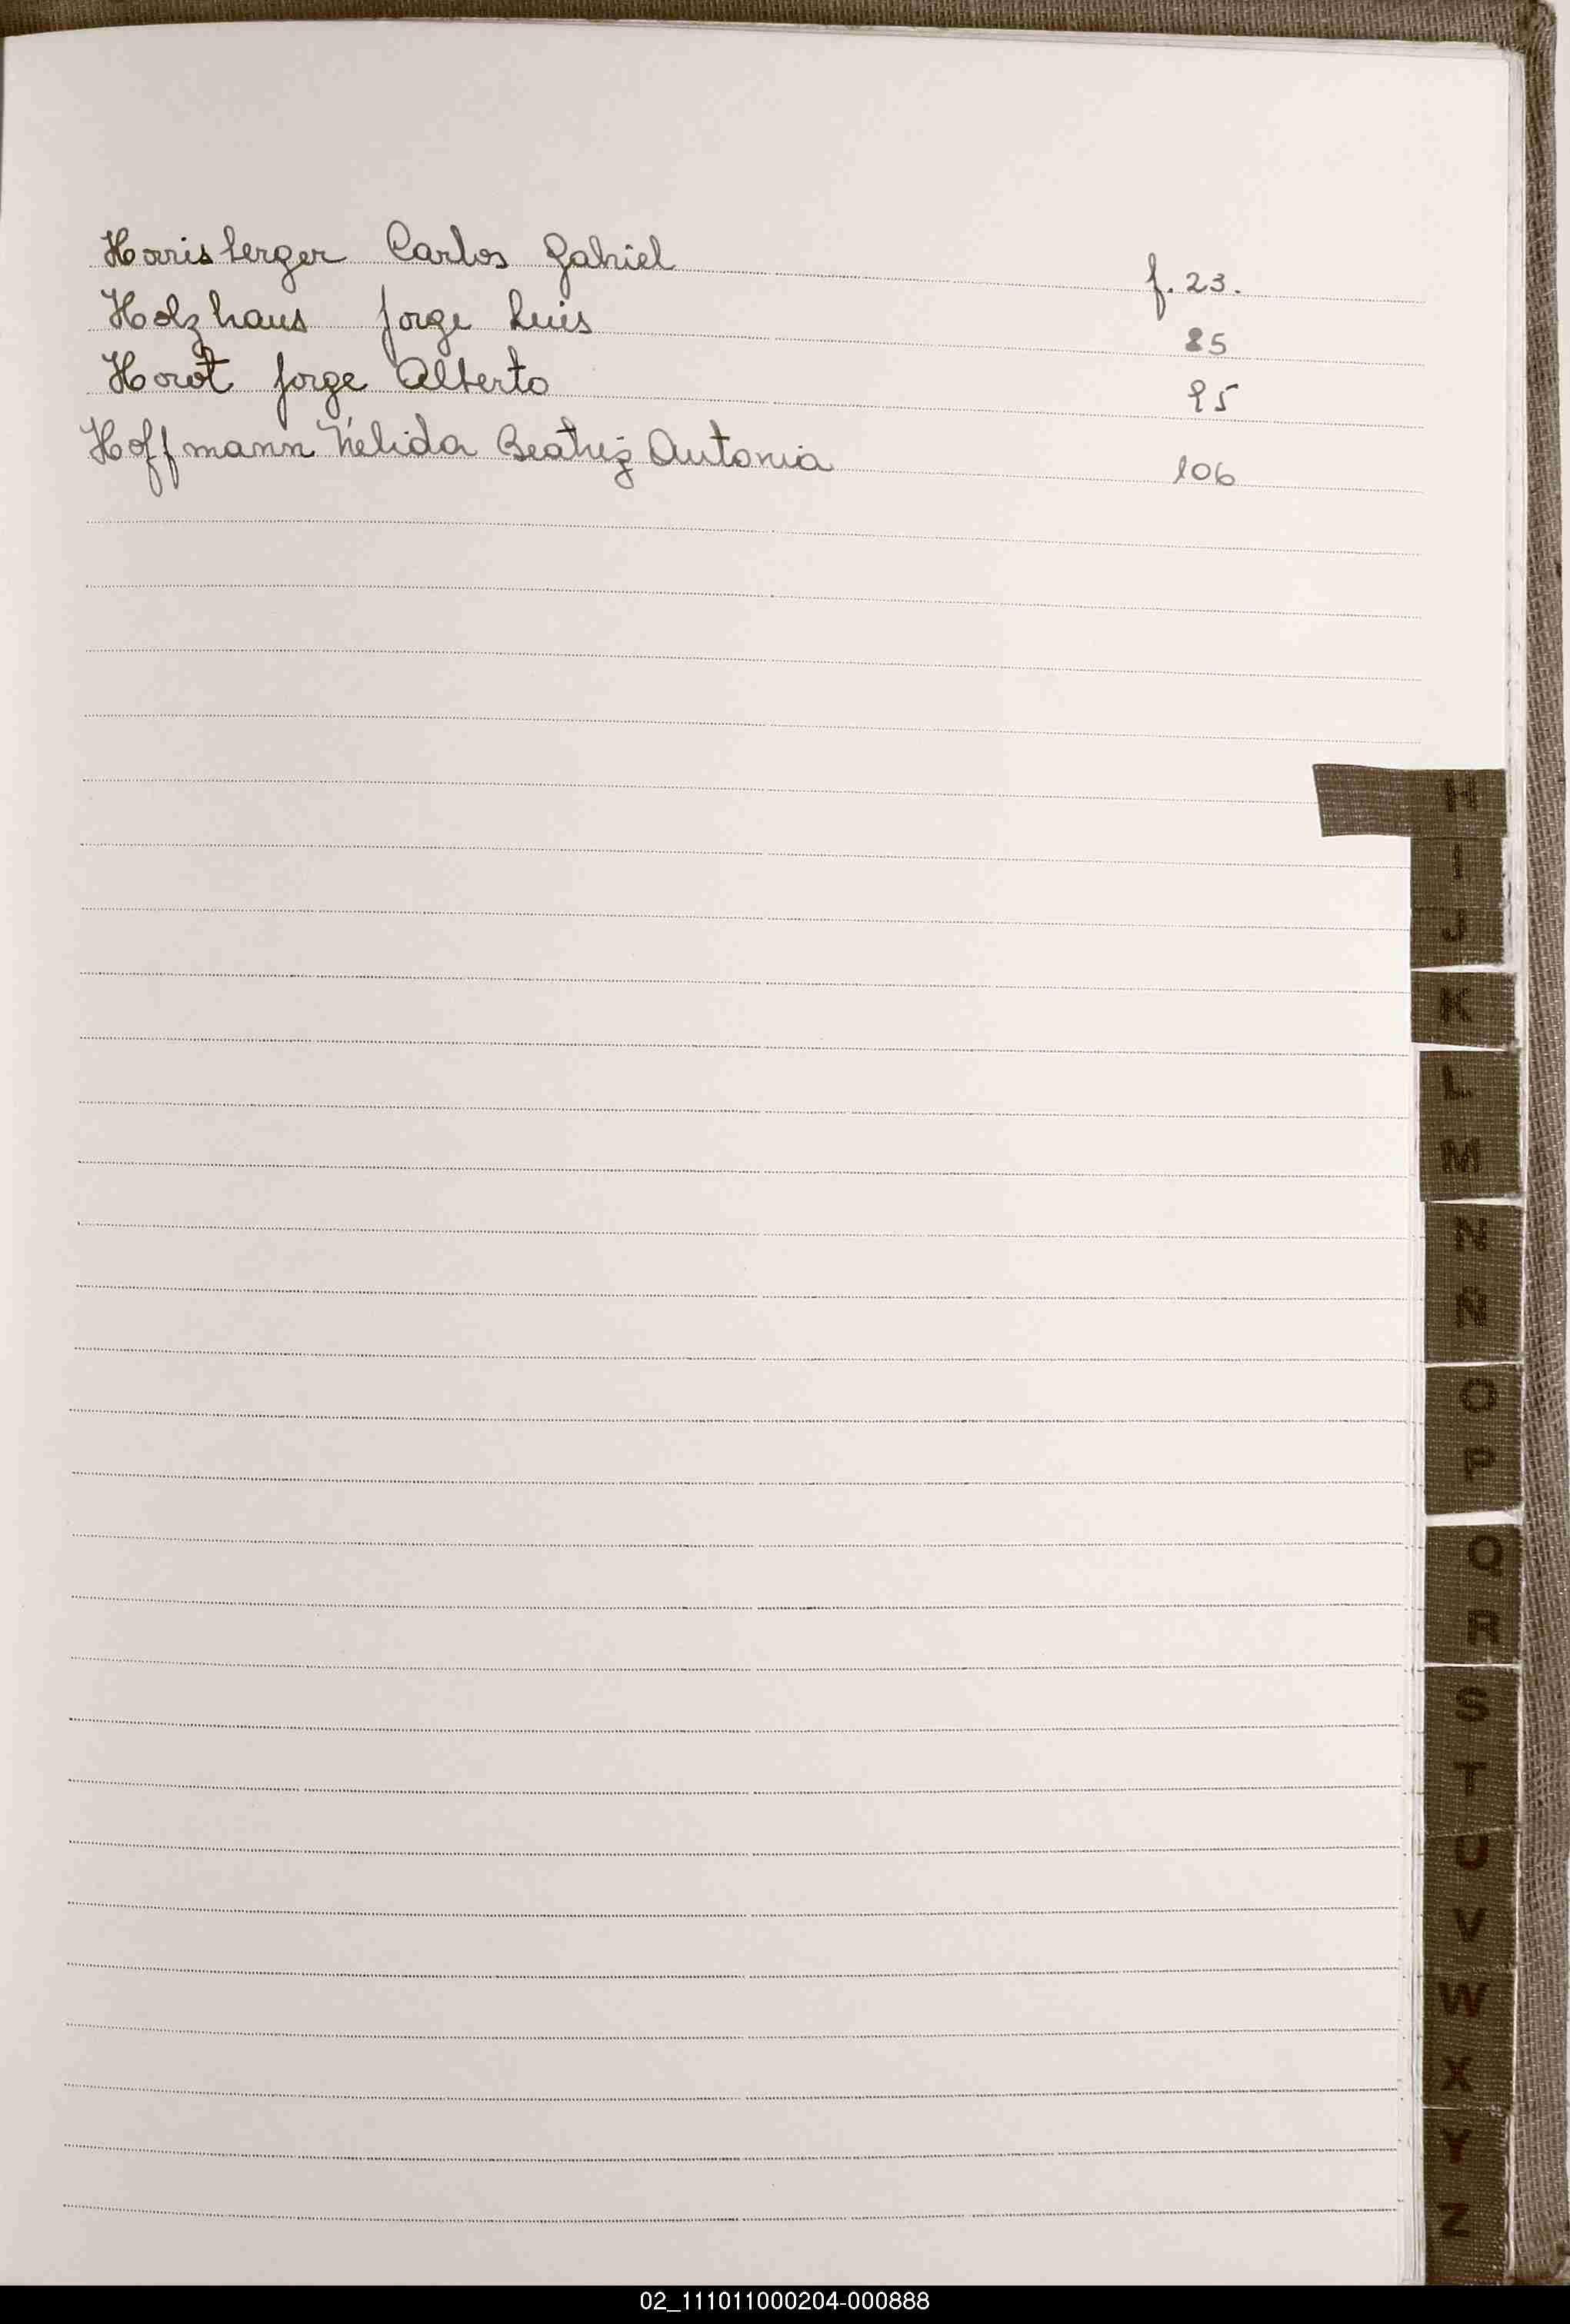 Horisberger Carlos Gabriel f. 23.
Holzhaus Jorge Luis 85
Horot Jorge Alberto 95
Hoffmann Nélida Beatriz Antonia 106
H
I
J
K
L
M
N
Ñ
O
P
Q
R
S
T
U
V
W
X
Y
Z
02_111011000204-000888